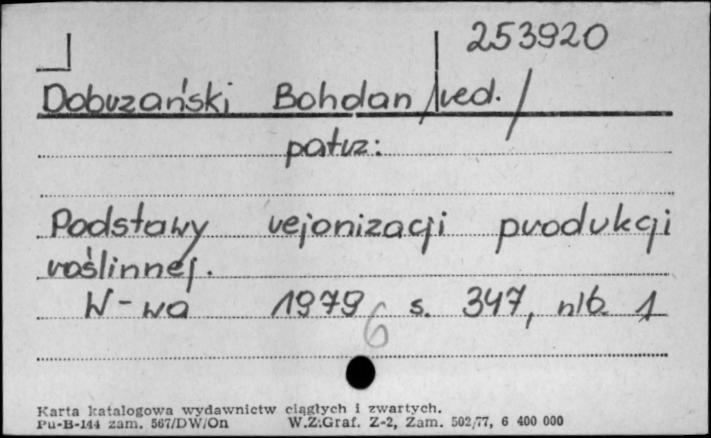 253920
Dobrzański Bohdan /red./
patrz:
Podstawy rejonizacji produkcji
roślinnej.
W-wa 1979 s. 347, nlb. 1
6
Karta katalogowa wydawnictw ciągłych i zwartych.
Pu-B-144 zam. 567/DW/On W.Z.Graf. Z-2, Zam. 502/77, 6 400 000